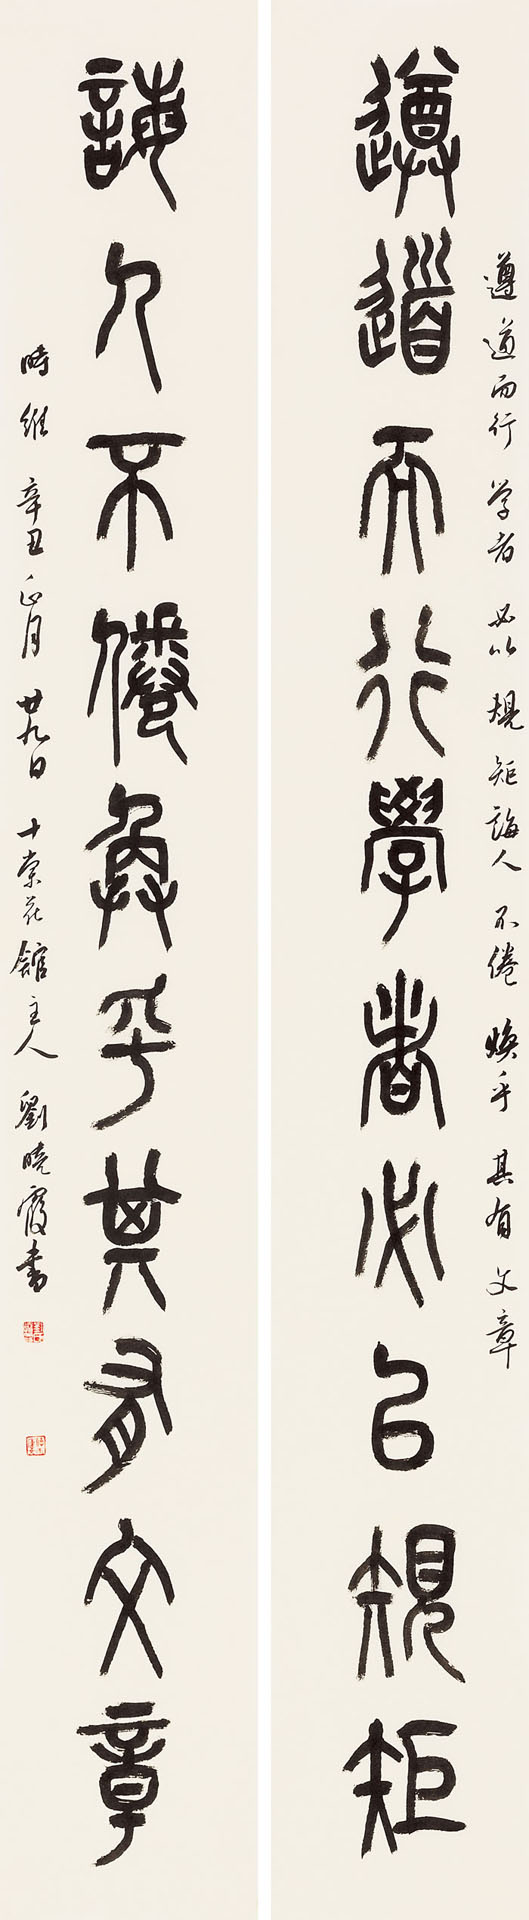 遵道而行 学者 必以 規矩 誨人 不倦 焕乎 其有 文章
遵道而行學者必以規矩
誨人不倦奐乎其有文章
時維 辛丑 正月 廿九日 十棠花館主人 劉曉霞书